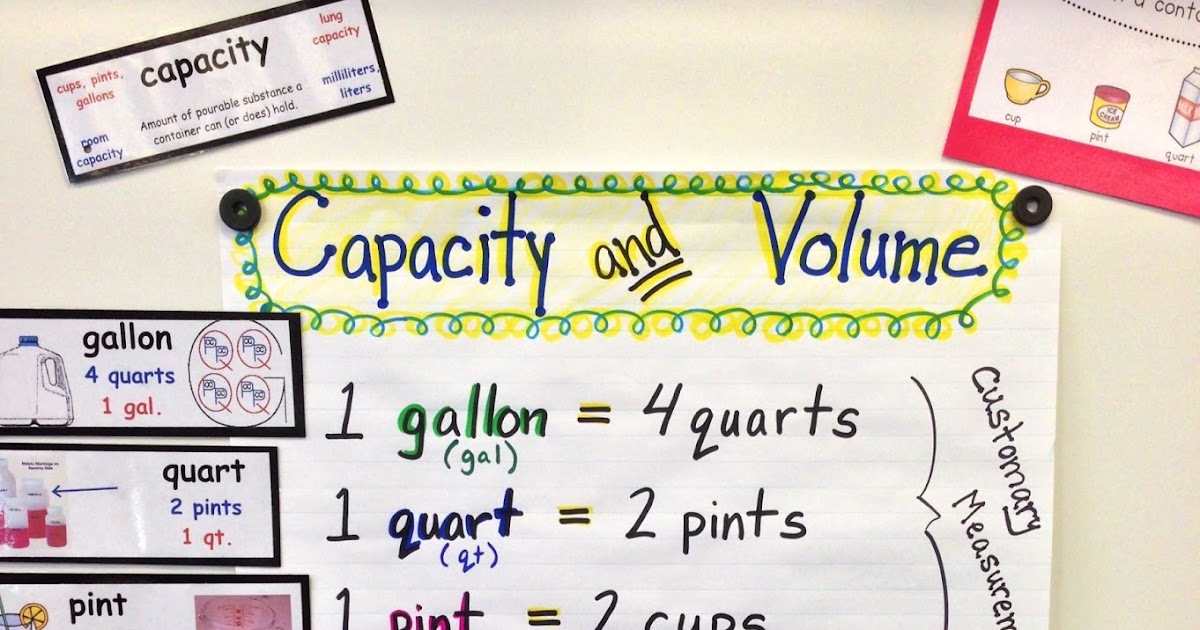 capacity
lung
capacity
cups, pints,
gallons
milliliters,
liters
Amount of pourable substance a
container can (or does) hold.
room
capacity
a conta
cup
ICE
CREAM
pint
quart
Capacity and Volume
gallon
4 quarts
1 gal.
quart
2 pints
1 qt.
pint
1 gallon = 4 quarts
(gal)
1 quart = 2 pints
(qt)
1 pint = 2 cups
Customary
Measurem